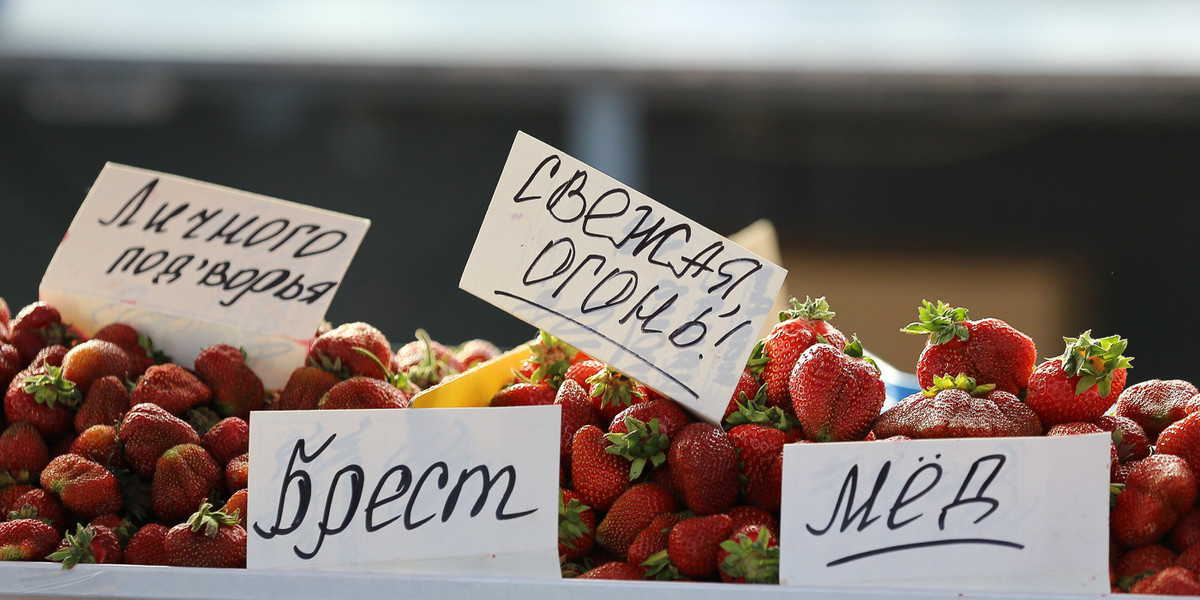 Личного
под'ворья
СВЕЖАЯ,
ОГОНЬ!
Брест
Мёд